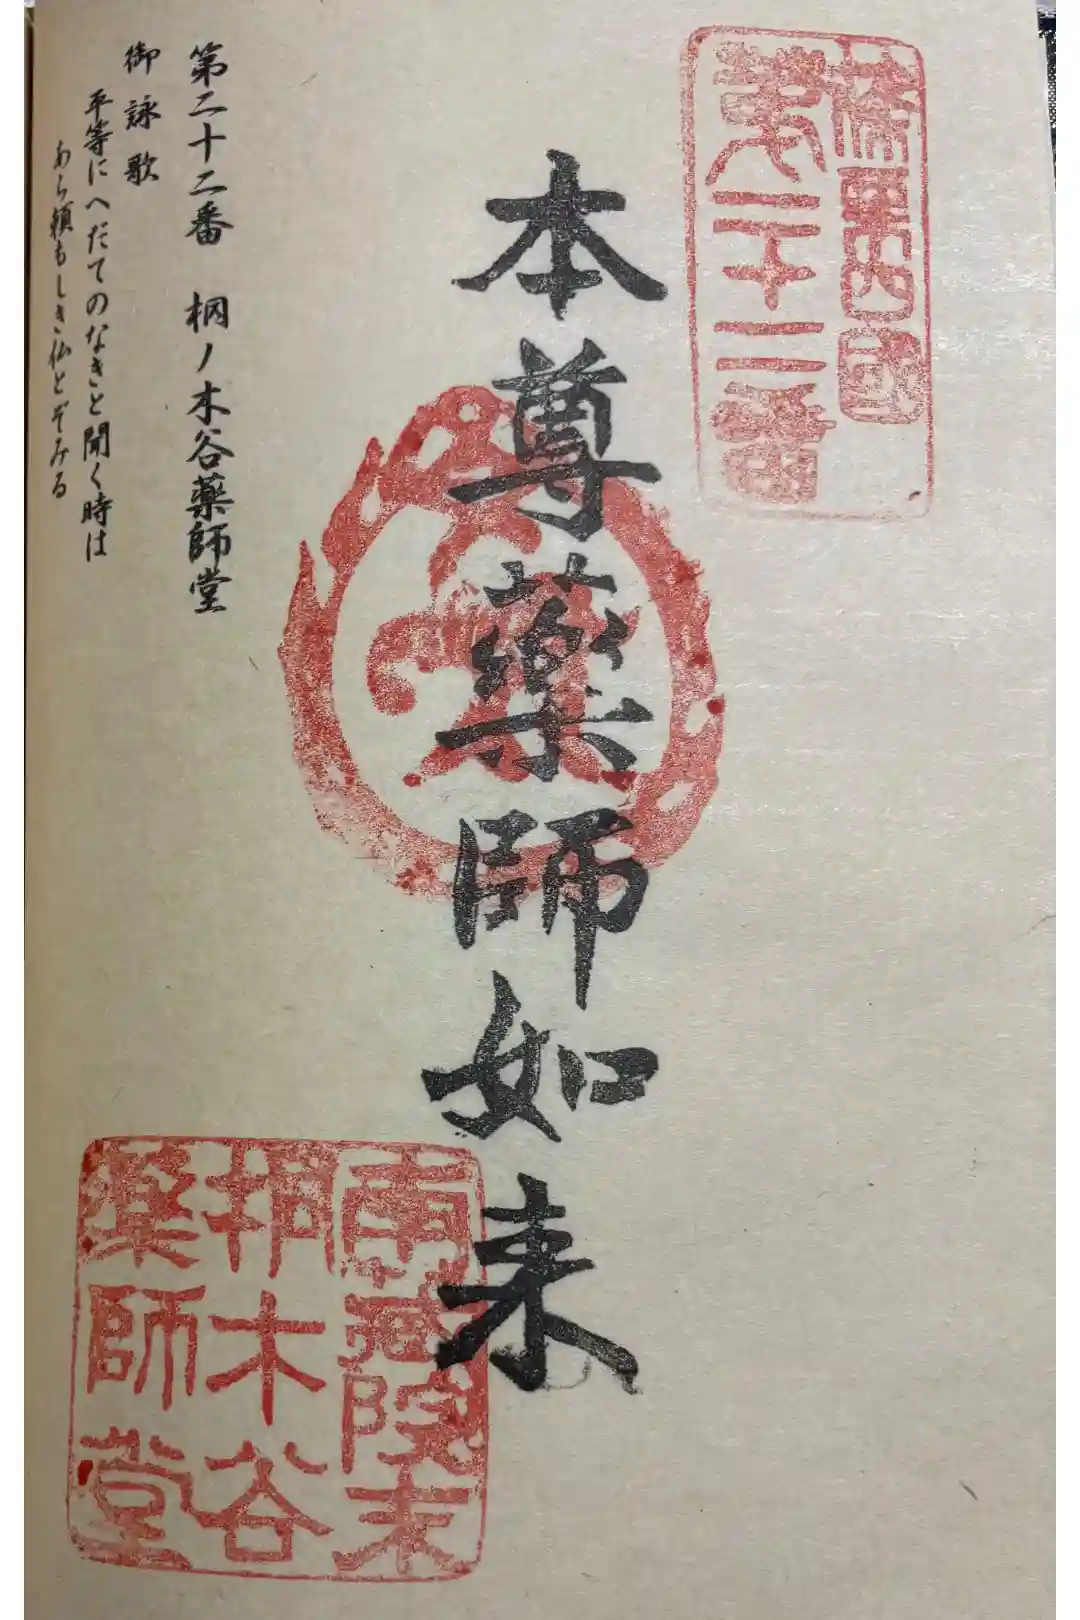 篠栗四國
第二十二番
本尊薬師如来
第二十二番 桐ノ木谷薬師堂
御詠歌
平等にへだてのなきと聞く時は
あら頼もしき仏とぞみる
南蔵院末
桐木谷
薬師堂